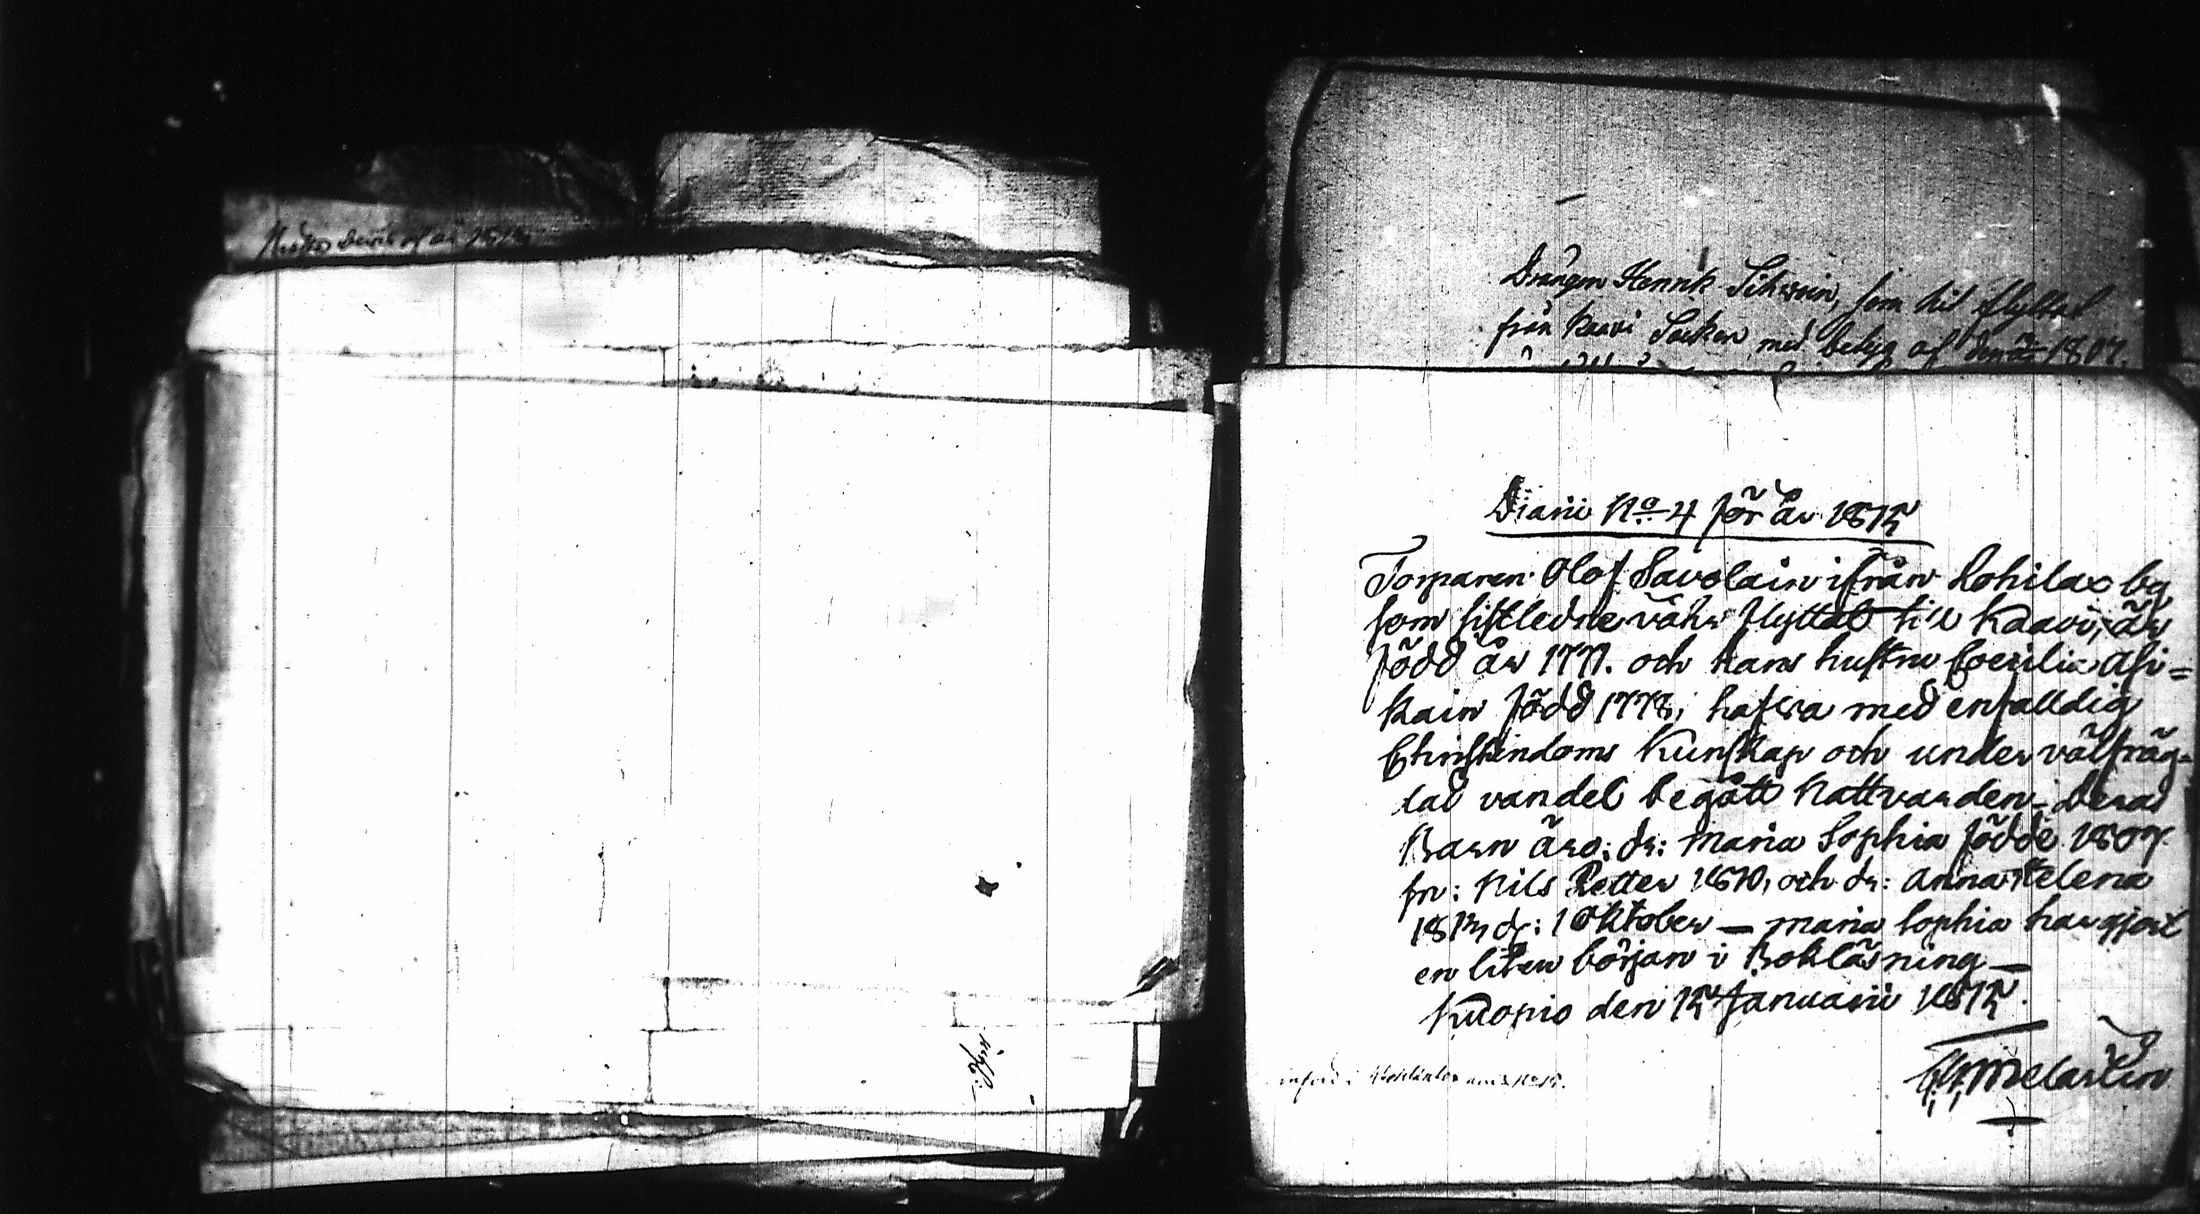 Drängen Henrik Sihvoin, som hit flyttat
från Kaavi Socken med betyg af 1807.
Diarii No 4 för år 1815
Torparen Olof Savolain ifrån Lohilax by
som sistledne våhr flyttat till Kaavi, är
född år 1771. och hans hustru Coecilia Asi=
kain född 1778, hafwa med enfalldig
Christendoms Kunskap och under välfräg=
dad vandel begått Nattvarden. Deras
Barn äro: dr: Maria Sophia födde 1807.
sn: Nils Petter 1810, och dr: Anna Helena
1813, d: 1 Oktober — Maria Sophia har gjort
en liten början i Bokläsning —
Kuopio den 15 Januarii 1815.
Melartin